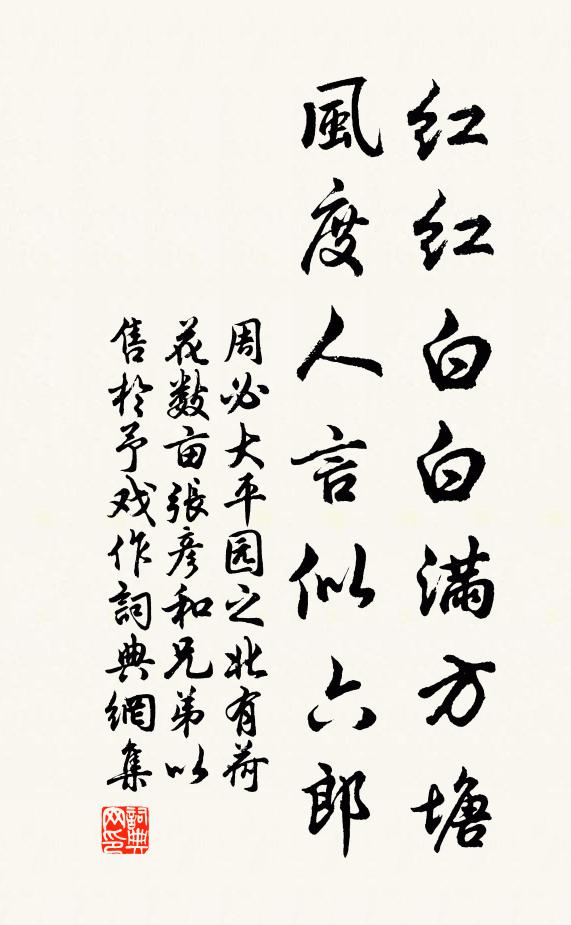 红红白白满方塘
風度人言似六郎
周必大平园之北有荷
花数亩張彦和兄弟以
售於予戏作詞典網集
詞典
网印